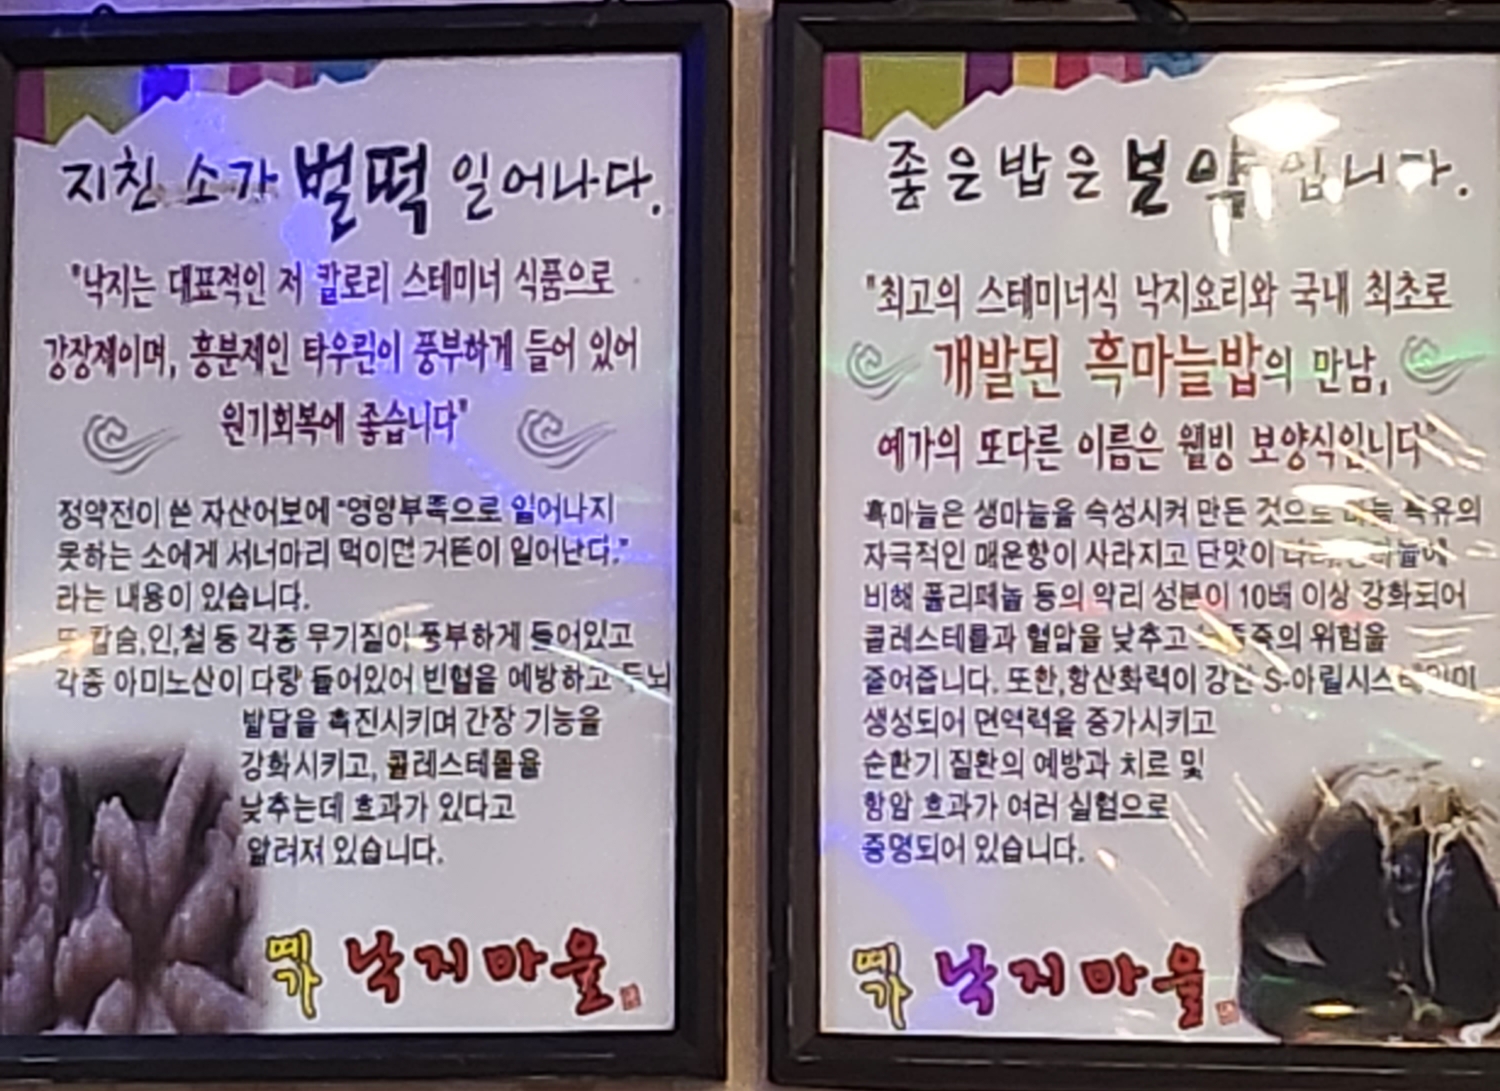 지친 소가 벌떡 일어나다.
"낙지는 대표적인 저 칼로리 스테미너 식품으로
강장제이며, 흥분제인 타우린이 풍부하게 들어 있어
원기회복에 좋습니다"
정약전이 쓴 자산어보에 "영양부족으로 일어나지
못하는 소에게 서너마리 먹이면 거뜬이 일어난다."
라는 내용이 있습니다.
또 칼슘,인,철 등 각종 무기질이 풍부하게 들어있고
각종 아미노산이 다량 들어있어 빈혈을 예방하고 두뇌
발달을 촉진시키며 간장 기능을
강화시키고, 콜레스테롤을
낮추는데 효과가 있다고
알려져 있습니다.
예가 낙지마을
좋은밥은 보약입니다.
"최고의 스테미너식 낙지요리와 국내 최초로
개발된 흑마늘밥의 만남,
예가의 또다른 이름은 웰빙 보양식인니다"
흑마늘은 생마늘을 숙성시켜 만든 것으로 마늘 특유의
자극적인 매운향이 사라지고 단맛이
비해 폴리페놀 등의 약리 성분이 10배 이상 강화되어
콜레스테롤과 혈압을 낮추고 의 위험을
줄여줍니다. 또한,항산화력이 강한 S-아릴시스테인이
생성되어 면역력을 증가시키고
순환기 질환의 예방과 치료 및
항암 효과가 여러 실험으로
증명되어 있습니다.
예가 낙지마을